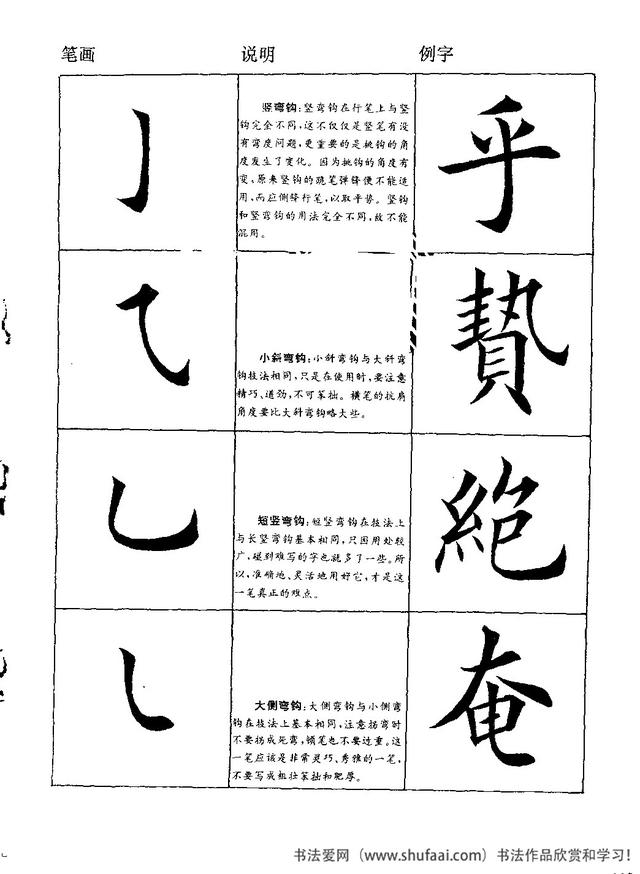 笔画 说明 例字
竖弯钩：竖弯钩在行笔上与竖
钩完全不同，这不仅仅是竖笔有没
有弯度问题，更重要的是挑钩的角
度发生了变化。因为挑钩的角度有
变，原来竖钩的跪笔弹锋便不能适
用，而应侧锋行笔，以取平势。竖钩
和竖弯钩的用法完全不同，故不能
混用。
乎
小斜弯钩：小斜弯钩与大斜弯
钩技法相同，只是在使用时，要注意
精巧、遒劲，不可笨拙。横笔的抗肩
角度要比大斜弯钩略大些。
贄
短竖弯钩：短竖弯钩在技法上
与长竖弯钩基本相同，只因用处较
广，碰到难写的字也就多了一些。所
以，准确地、灵活地用好它，才是这
一笔真正的难点。
絕
大侧弯钩：大侧弯钩与小侧弯
钩在技法上基本相同，注意拐弯时
不要拐成死弯，顿笔也不要过重。这
一笔应该是非常灵巧、秀雅的一笔，
不要写成粗壮笨拙和肥厚。
奄
书法爱网（www.shufaai.com）书法作品欣赏和学习！